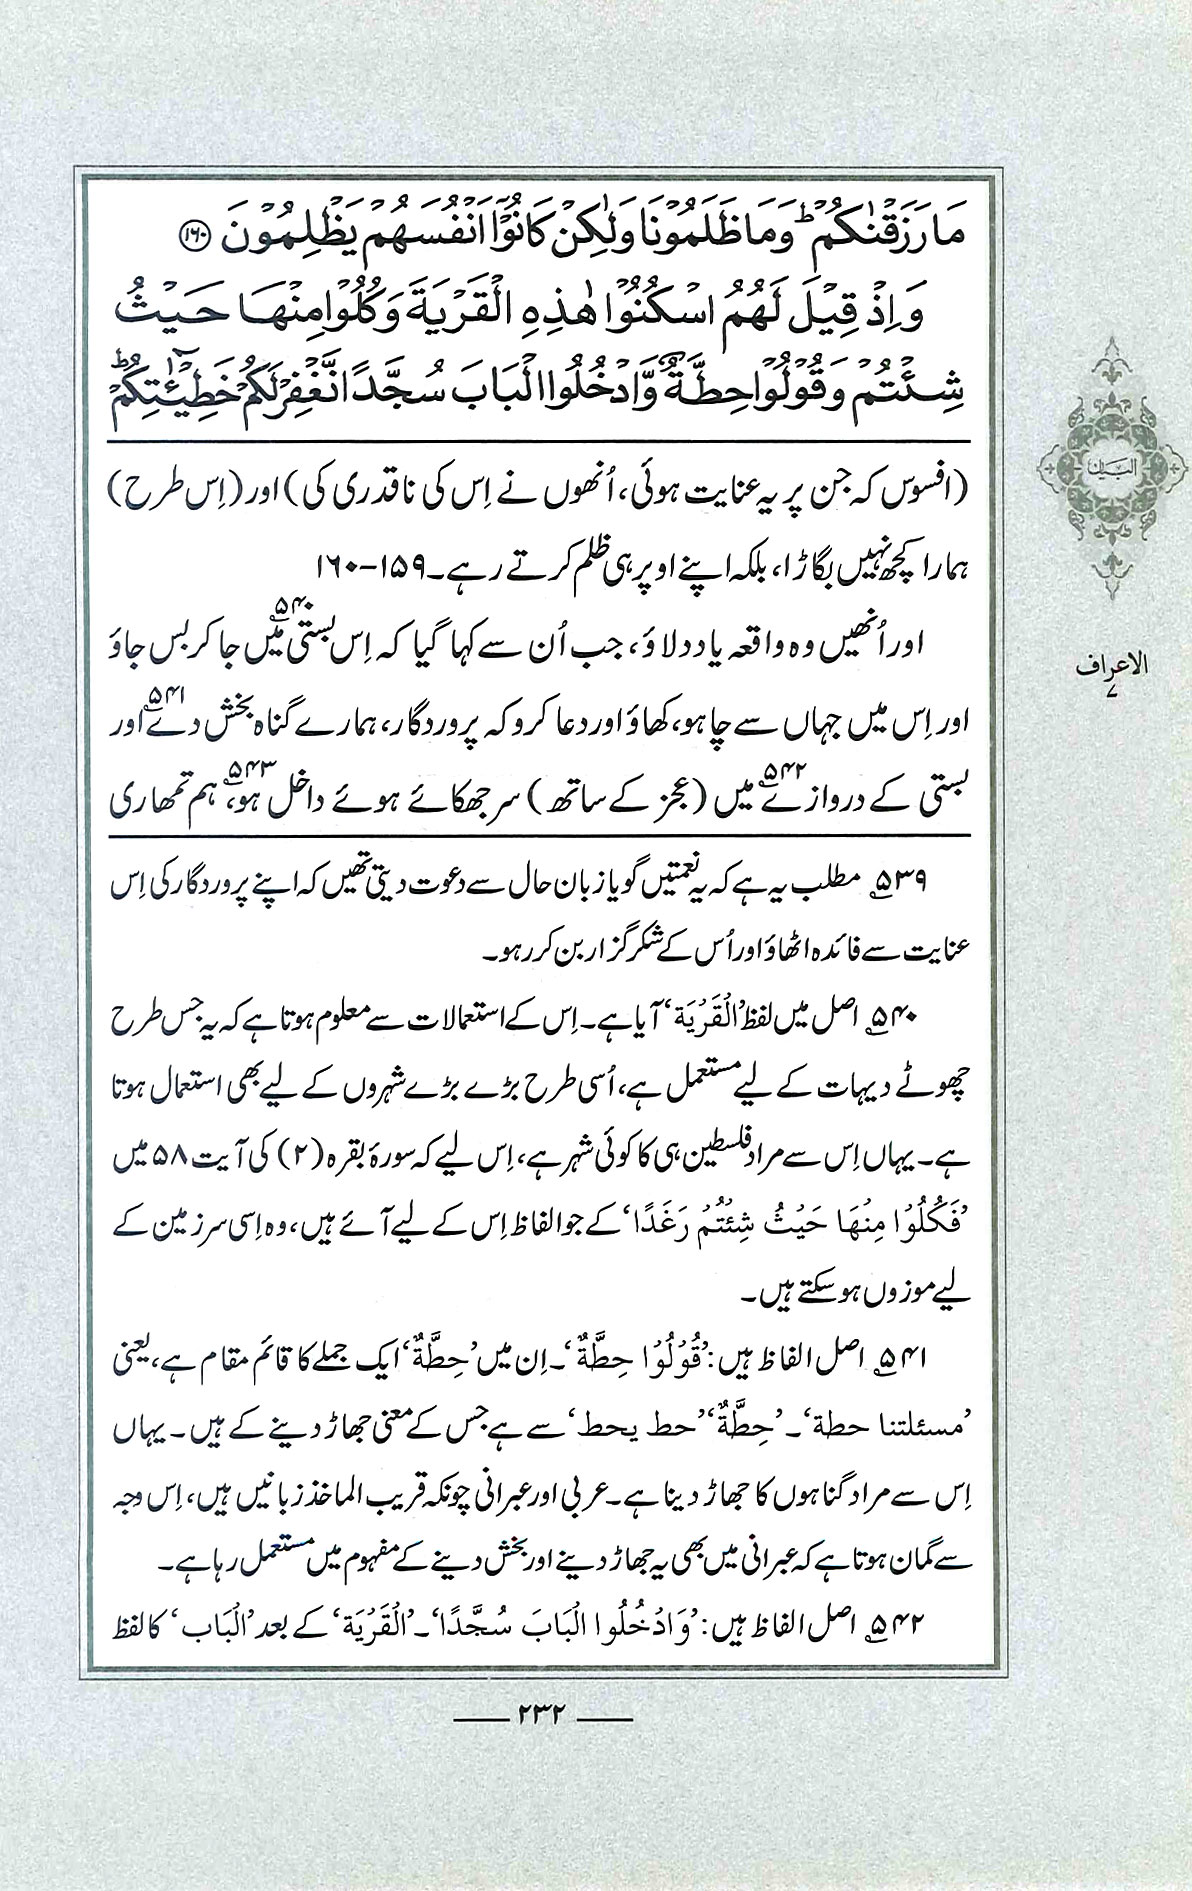 مَا رَزَقْنٰكُمْ ؕ وَمَا ظَلَمُوْنَا وَلٰكِنْ كَانُوْٓا اَنْفُسَهُمْ يَظْلِمُوْنَ ﴿۱۶۰﴾
وَاِذْ قِيْلَ لَهُمُ اسْكُنُوْا هٰذِهِ الْقَرْيَةَ وَكُلُوْا مِنْهَا حَيْثُ
شِئْتُمْ وَقُوْلُوْا حِطَّةٌ وَّادْخُلُوا الْبَابَ سُجَّدًا نَّغْفِرْ لَكُمْ خَطِيْٓـٰٔتِكُمْ ؕ
(افسوس کہ جن پر یہ عنایت ہوئی، اُنھوں نے اِس کی ناقدری کی) اور (اِس طرح)
ہمارا کچھ نہیں بگاڑا، بلکہ اپنے اوپر ہی ظلم کرتے رہے۔ ۱۵۹-۱۶۰
اور اُنھیں وہ واقعہ یاد دلاؤ، جب اُن سے کہا گیا کہ اِس بستی۵۴۰ میں جا کر بس جاؤ
اور اِس میں جہاں سے چاہو، کھاؤ اور دعا کرو کہ پروردگار، ہمارے گناہ بخش دے۵۴۱ اور
بستی کے دروازے۵۴۲ میں (عجز کے ساتھ) سر جھکائے ہوئے داخل ہو،۵۴۳ ہم تمھاری
۵۳۹؎ مطلب یہ ہے کہ یہ نعمتیں گویا زبان حال سے دعوت دیتی تھیں کہ اپنے پروردگار کی اِس
عنایت سے فائدہ اٹھاؤ اور اُس کے شکر گزار بن کر رہو۔
۵۴۰؎ اصل میں لفظ ’الْقَرْيَة‘ آیا ہے۔ اِس کے استعمالات سے معلوم ہوتا ہے کہ یہ جس طرح
چھوٹے دیہات کے لیے مستعمل ہے، اُسی طرح بڑے بڑے شہروں کے لیے بھی استعمال ہوتا
ہے۔ یہاں اِس سے مراد فلسطین ہی کا کوئی شہر ہے، اِس لیے کہ سورۂ بقرہ (۲) کی آیت ۵۸ میں
’فَكُلُوْا مِنْهَا حَيْثُ شِئْتُمْ رَغَدًا‘ کے جو الفاظ اِس کے لیے آئے ہیں، وہ اِسی سرزمین کے
لیے موزوں ہو سکتے ہیں۔
۵۴۱؎ اصل الفاظ ہیں: ’قُوْلُوْا حِطَّةٌ‘۔ اِن میں ’حِطَّةٌ‘ ایک جملے کا قائم مقام ہے، یعنی
’مسئلتنا حطة‘۔ ’حِطَّةٌ‘ ’حط یحط‘ سے ہے جس کے معنی جھاڑ دینے کے ہیں۔ یہاں
اِس سے مراد گناہوں کا جھاڑ دینا ہے۔ عربی اور عبرانی چونکہ قریب الماخذ زبانیں ہیں، اِس وجہ
سے گمان ہوتا ہے کہ عبرانی میں بھی یہ جھاڑ دینے اور بخش دینے کے مفہوم میں مستعمل رہا ہے۔
۵۴۲؎ اصل الفاظ ہیں: ’وَادْخُلُوا الْبَابَ سُجَّدًا‘۔ ’الْقَرْيَة‘ کے بعد ’الْبَاب‘ کا لفظ
البیان
الاعراف
۷
۲۳۲